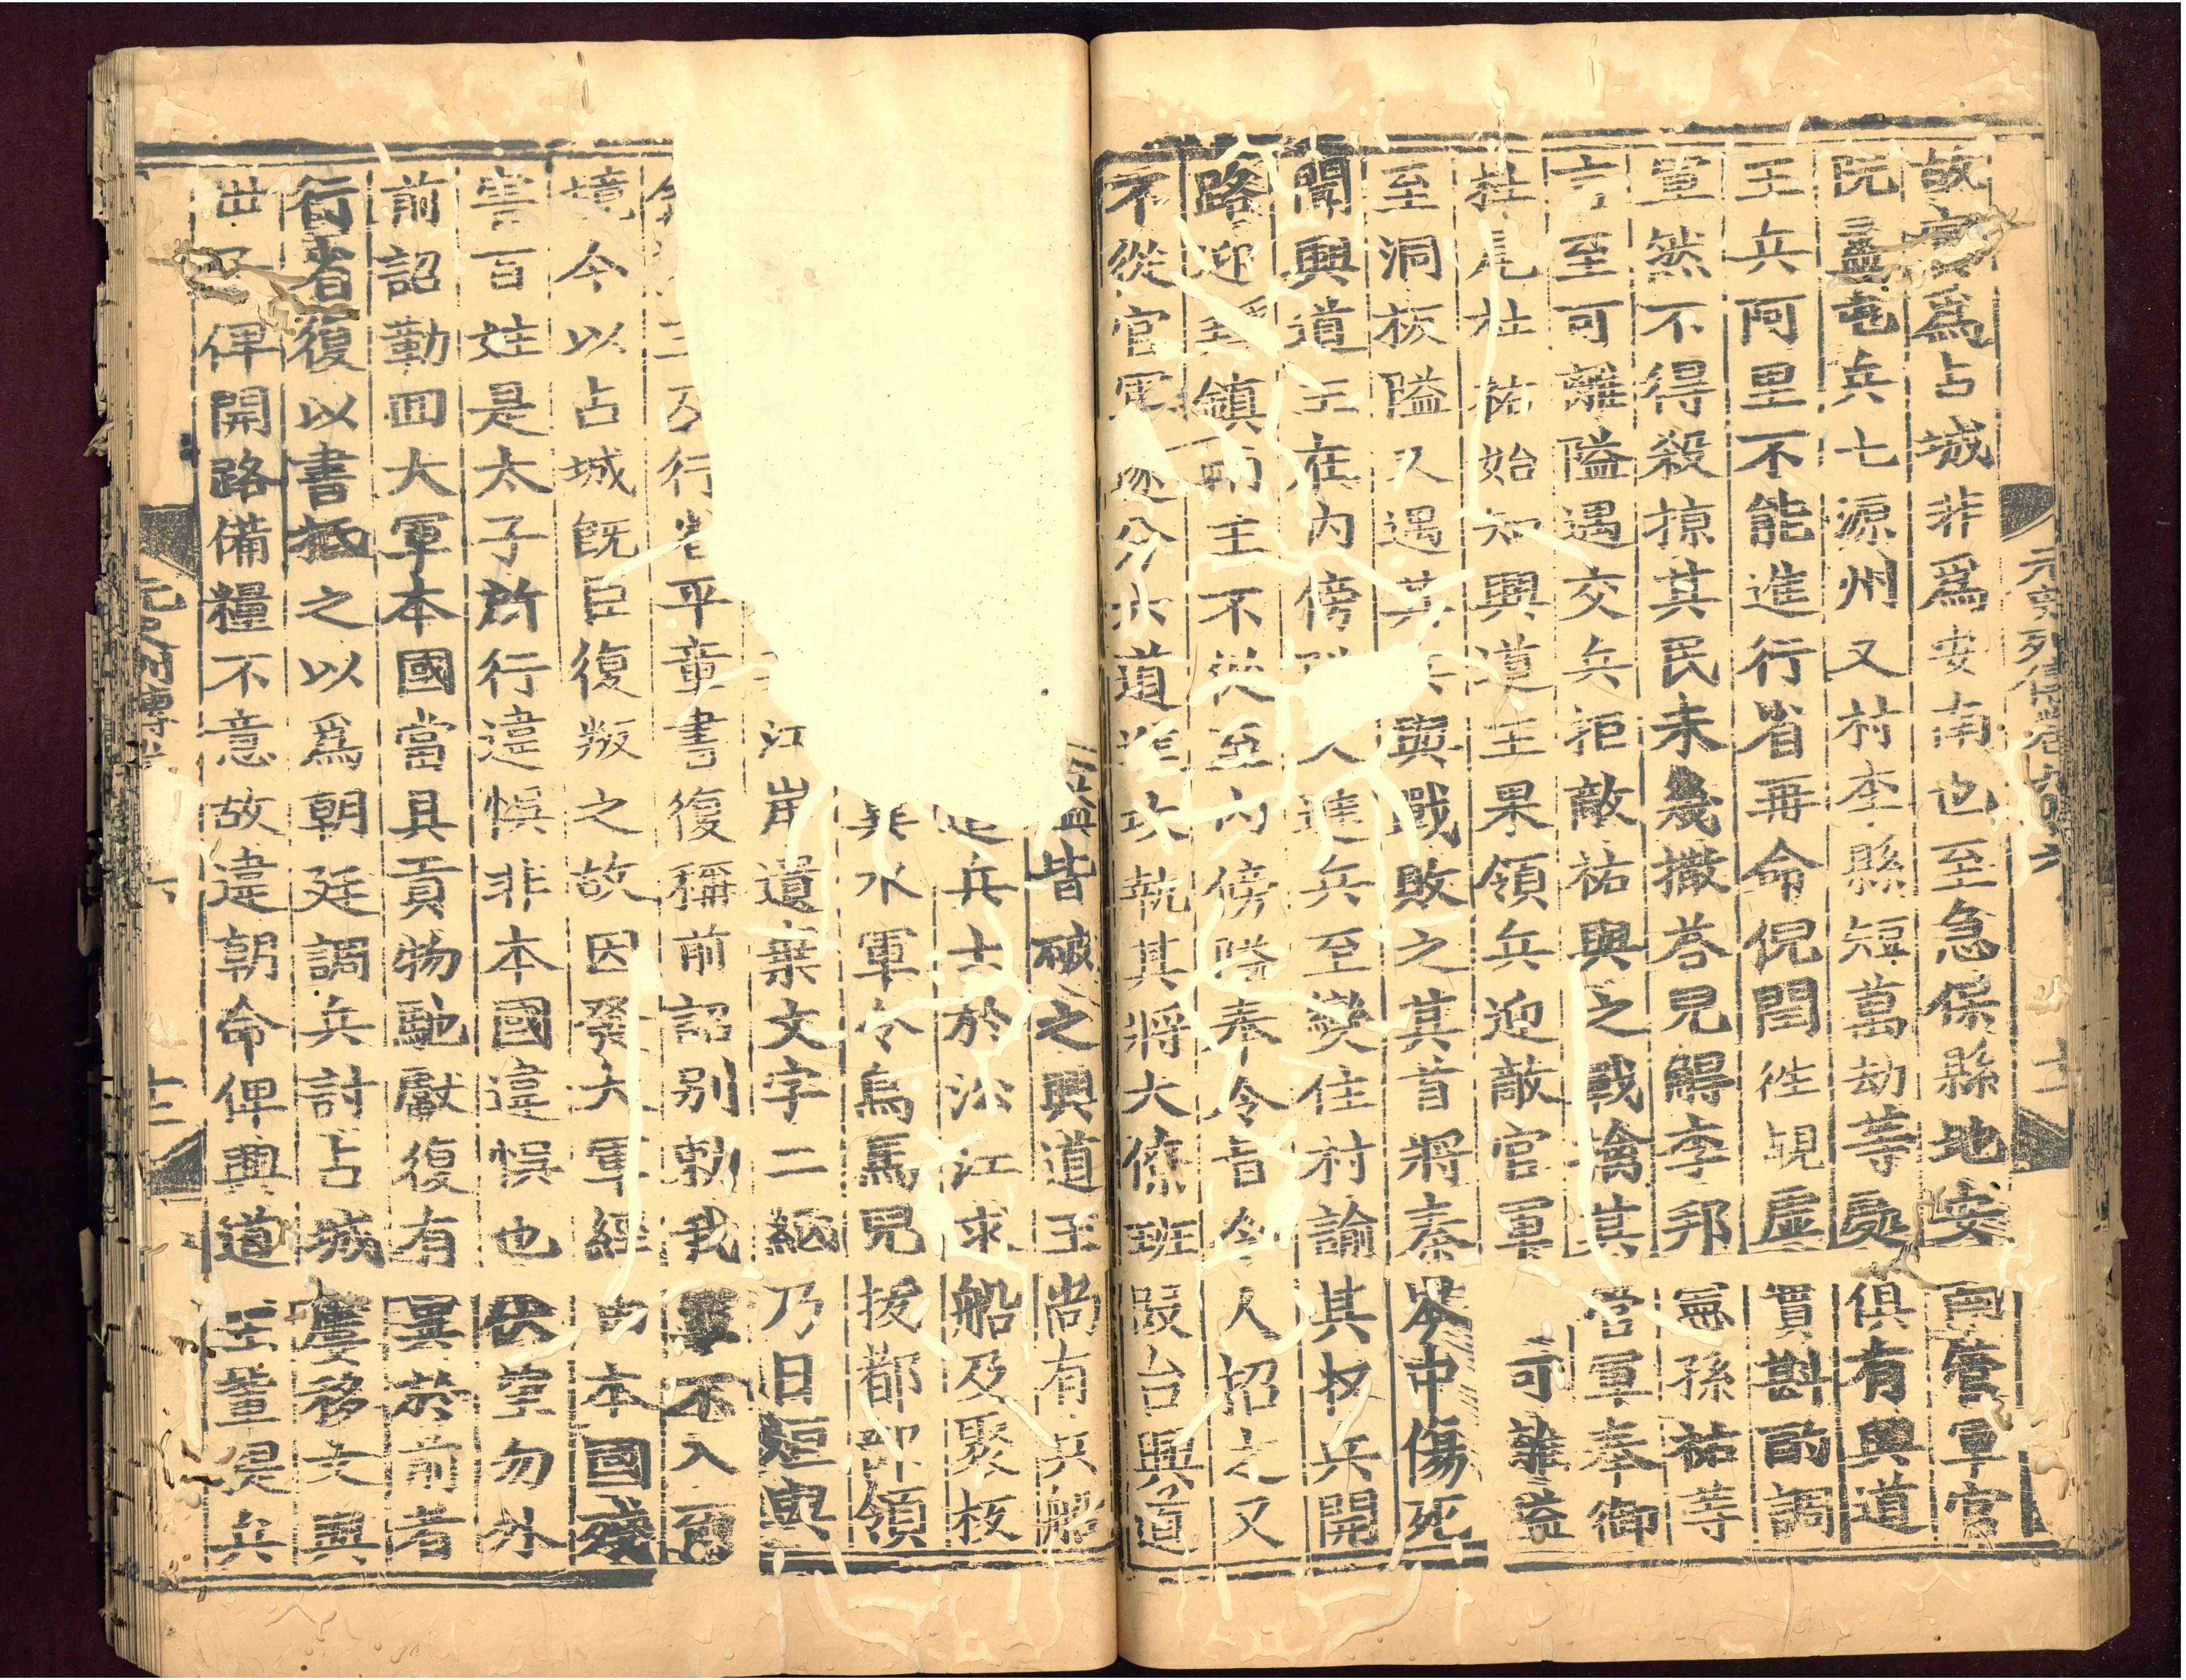 故官爲占城非爲安南也至急保縣地安南管軍官
阮盝屯兵七源州又村李縣短萬劫等處俱有興道
王兵阿里不能進行省再命倪閏徃覘虚實斟酌調
軍然不得殺掠其民未幾撒荅兒䚟李邦憲孫祐等
言至可離隘遇交兵拒敵祐與之戰擒其管軍奉御
杜尾杜祐始知興道王果領兵迎敵官軍可離隘
至洞板隘又遇其兵與戰敗之其首將秦岑中傷死
聞興道王在内傍隘進兵至變住村諭其收兵開
路迎拜鎮南王不從至内傍隘奉令旨令人招之又
不從官軍遂分六道進攻執其將大僚班段台興道
隘皆破之興道王尚有兵船
兵士於沿江求船及聚板
水軍令烏馬兒拔都部領
江岸遺棄文字二紙乃日烜與
行省平章書復稱前詔别勑我軍不入爾
境今以占城既臣復叛之故因發大軍經由本國殘
害百姓是太子所行違悞非本國違悞也伏望勿外
前詔勒回大軍本國當具貢物馳獻復有異於前者
行省復以書抵之以爲朝廷調兵討占城屢移文與
世子俾開路備糧不意故違朝命俾興道王輩提兵
元史列傳卷
十二